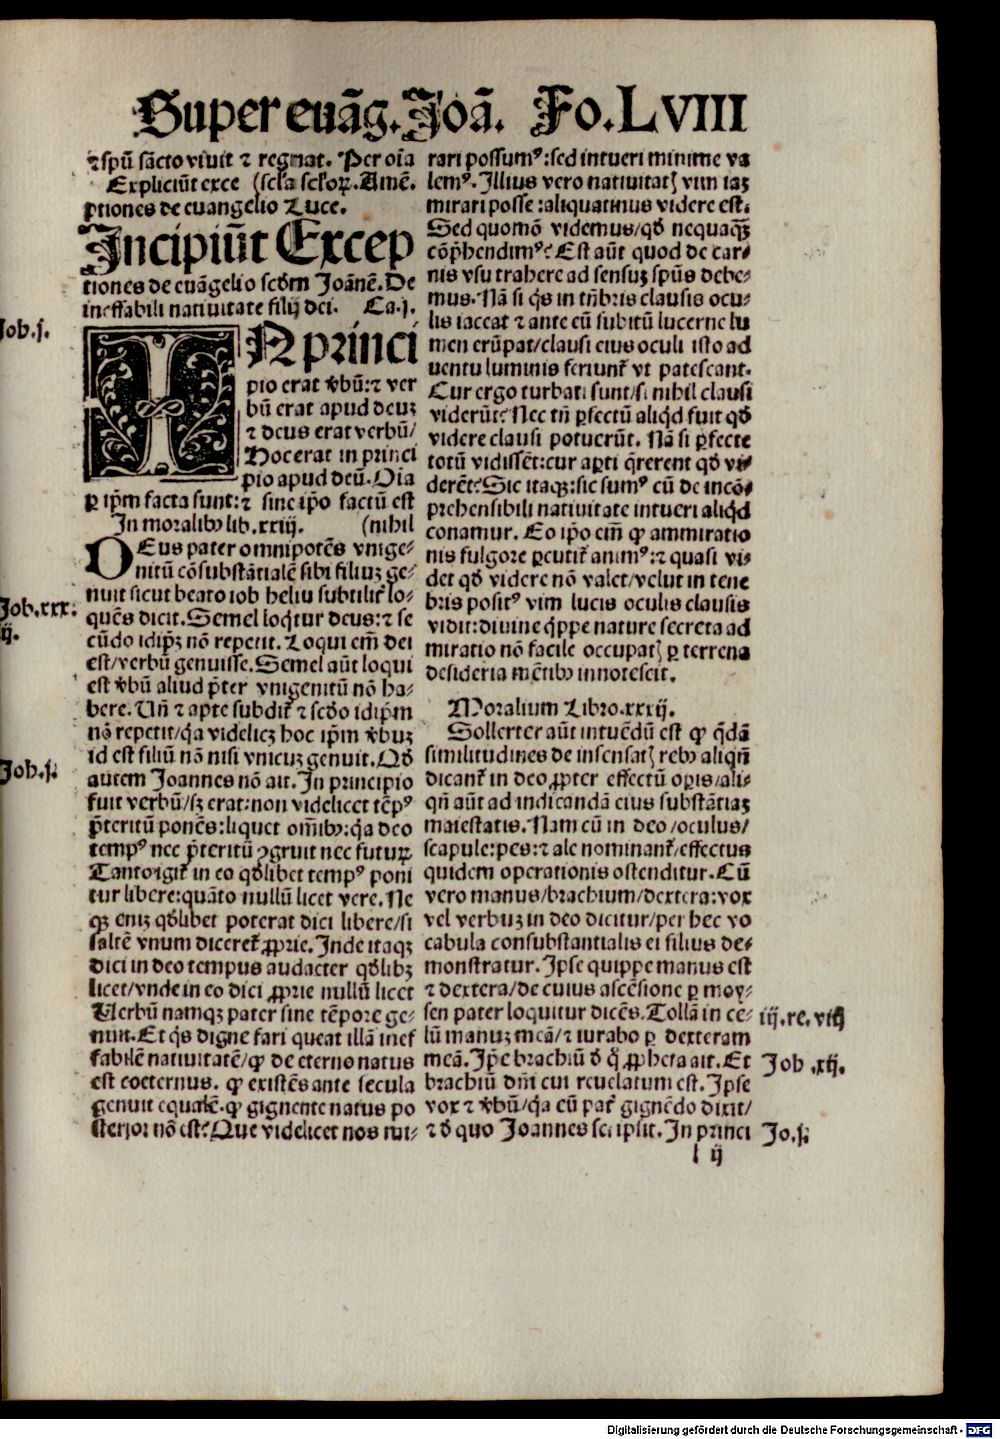 Super euāg. Joā. Fo. LVIII
⁊ spū sācto viuit ⁊ regnat. Per oīa
Expliciūt exce (scl'a scl'oꝝ. Amē.
ptiones de euangelio Luce.
Incipiūt Excep
tiones de euāgelio scd̄m Joānē. De
ineffabili natiuitate filij dei. Ca. j.
Job. j.
IN princi
pio erat v̄bū: ⁊ ver
bū erat apud deuȝ
⁊ deus erat verbū/
Hoc erat in princi
pio apud deū. Oīa
ꝑ ip̄m facta sunt: ⁊ sine ip̄o factū est
In moralibꝰ lib. xxiij. (nihil
DEus pater omnipotēs vnige-
nitū cōsubstātialē sibi filiuȝ ge-
nuit sicut beato iob heliu subtilit̄ lo-
Job. xxx.
ij.
quēs dicit. Semel loq̇tur deus: ⁊ se
cūdo idip̄ȝ nō repetit. Loqui em̄ dei
est/verbū genuisse. Semel aūt loqui
est v̄bū aliud p̄ter vnigenitū nō ha-
bere. Un̄ ⁊ apte subdit̄ ⁊ scd̄o idip̄m
nō repetit/q̇a videlicȝ hoc ip̄m v̄buȝ
id est filiū nō nisi vnicuȝ genuit. Qd̄
Joh. j.
autem Joannes nō ait. In principio
fuit verbū/sȝ erat: non videlicet tēpꝰ
p̄teritū ponēs: liquet om̄ibꝰ: q̇a deo
tempꝰ nec p̄teritū ꝯgruit nec futuꝝ
Tanto igit̄ in eo qd̄libet tempꝰ poni
tur libere: quāto nullū licet vere. Ne
qȝ eniȝ qd̄libet poterat dici libere/si
saltē vnum diceret̄ ꝓprie. Inde itaqȝ
dici in deo tempus audacter qd̄libȝ
licet/vnde in eo dici ꝓprie nullū licet
Uerbū namqȝ pater sine tēpore ge-
nuit. Et q̇s digne fari queat illā inef
fabilē natiuitatē/ꝙ de eterno natus
est coeternus. ꝙ existēs ante secula
genuit equalē. ꝙ gignente natus po
sterior nō est? Que videlicet nos mi-
rari possumꝰ: sed intueri minime va
lemꝰ. Illius vero natiuitatꝭ vim iaȝ
mirari posse: aliquatinus videre est.
Sed quomō videmus/qd̄ nequaqȝ
cōp̄hendimꝰ? Est aūt quod de car-
nis vsu trahere ad sensuȝ spūs debe-
mus. Nā si q̇s in tn̄bris clausis ocu-
lis iaceat ⁊ ante eū subitū lucerne lu
men erūpat/clausi eius oculi isto ad
uentu luminis feriunt̄ vt patescant.
Cur ergo turbati sunt/si nihil clausi
viderūt? Nec tn̄ ꝑfectū aliq̇d fuit qd̄
videre clausi potuerūt. Nā si ꝑfecte
totū vidissēt: cur aꝑti q̄rerent qd̄ vi-
derēt? Sic itaqȝ: sic sumꝰ cū de incō-
prehensibili natiuitate intueri aliq̇d
conamur. Eo ip̄o em̄ ꝙ ammiratio
nis fulgore ꝑcutit̄ animꝰ: ⁊ quasi vi-
det qd̄ videre nō valet/velut in tene
bris positꝰ vim lucis oculis clausis
vidit: diuine q̇ppe nature secreta ad
miratio nō facile occupatꝭ ꝑ terrena
desideria mētibꝰ innotescit.
Moralium Libro. xxxij.
Sollerter aūt intuēdū est ꝙ q̄dā
similitudines de insensatꝭ rebꝰ aliqn̄
dicant̄ in deo ꝓpter effectū oꝑis/ali-
qn̄ aūt ad indicandā eius substātiaȝ
maiestatis. Nam cū in deo/oculus/
scapule: pes: ⁊ ale nominant̄/effectus
quidem operationis ostenditur. Cū
vero manus/brachium/dextera: vox
vel verbuȝ in deo dicitur/per hec vo
cabula consubstantialis ei filius de-
monstratur. Ipse quippe manus est
⁊ dextera/de cuius ascēsione ꝑ moy-
sen pater loquitur dicēs. Tollā in ce-
iij. re. viij
lū manuȝ meā/⁊ iurabo ꝑ dexteram
meā. Ip̄e brachiū d̄ q̊ ꝓpheta ait. Et
Job. xij.
brachiū dn̄i cui reuelatum est. Ipse
vox ⁊ v̄bū/q̇a eū pat̄ gignēdo dixit/
⁊ d̄ quo Joannes scripsit. In princi
Jo. j.
l ij
Digitalisierung gefördert durch die Deutsche Forschungsgemeinschaft - DFG